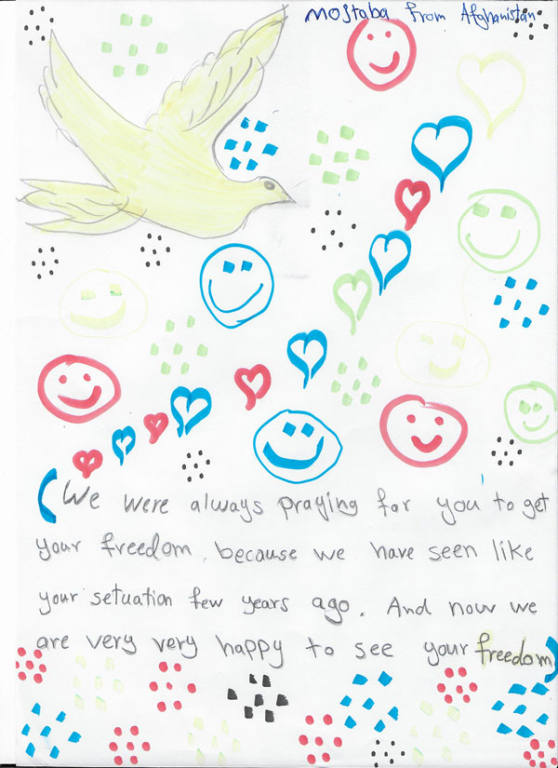 Mojtaba from Afghanistan
(We were always praying for you to get
your freedom, because we have seen like
your setuation few years ago. And now we
are very very happy to see your freedom)